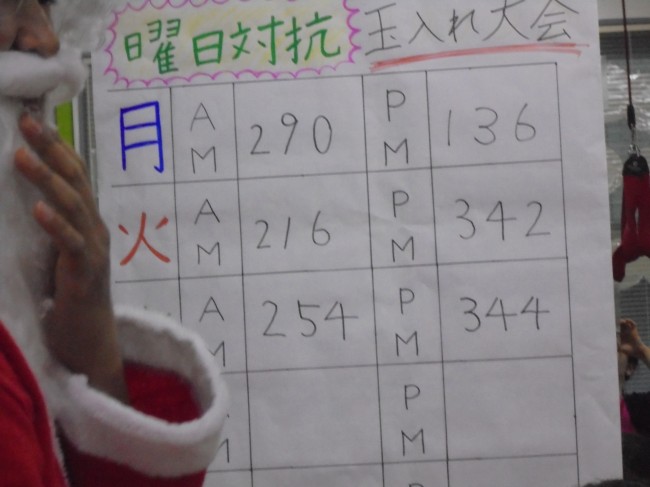 曜日対抗 玉入れ大会
月 AM 290 PM 136
火 AM 216 PM 342
AM 254 PM 344
M PM